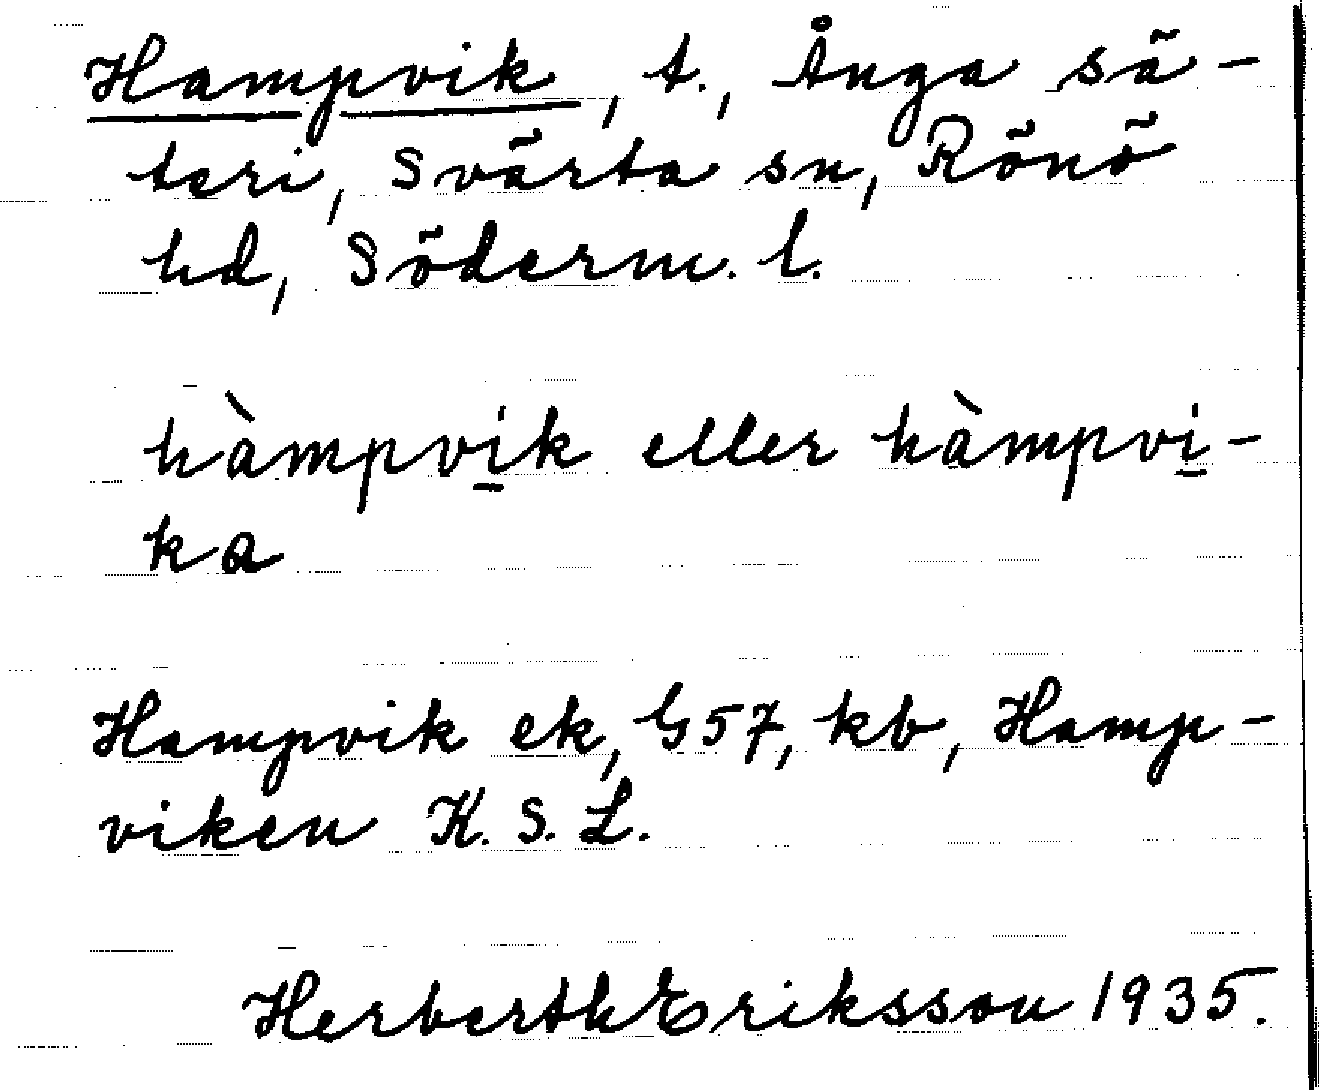 Hampvik, t., Ånga sä-
teri, Svärta sn, Rönö
hd, Söderm. l.
hàmpvi̲k eller hàmpvi̲-
ka
Hampvik ek, G57, kb, Hamp-
viken K. S. L.
Herberth Eriksson 1935.